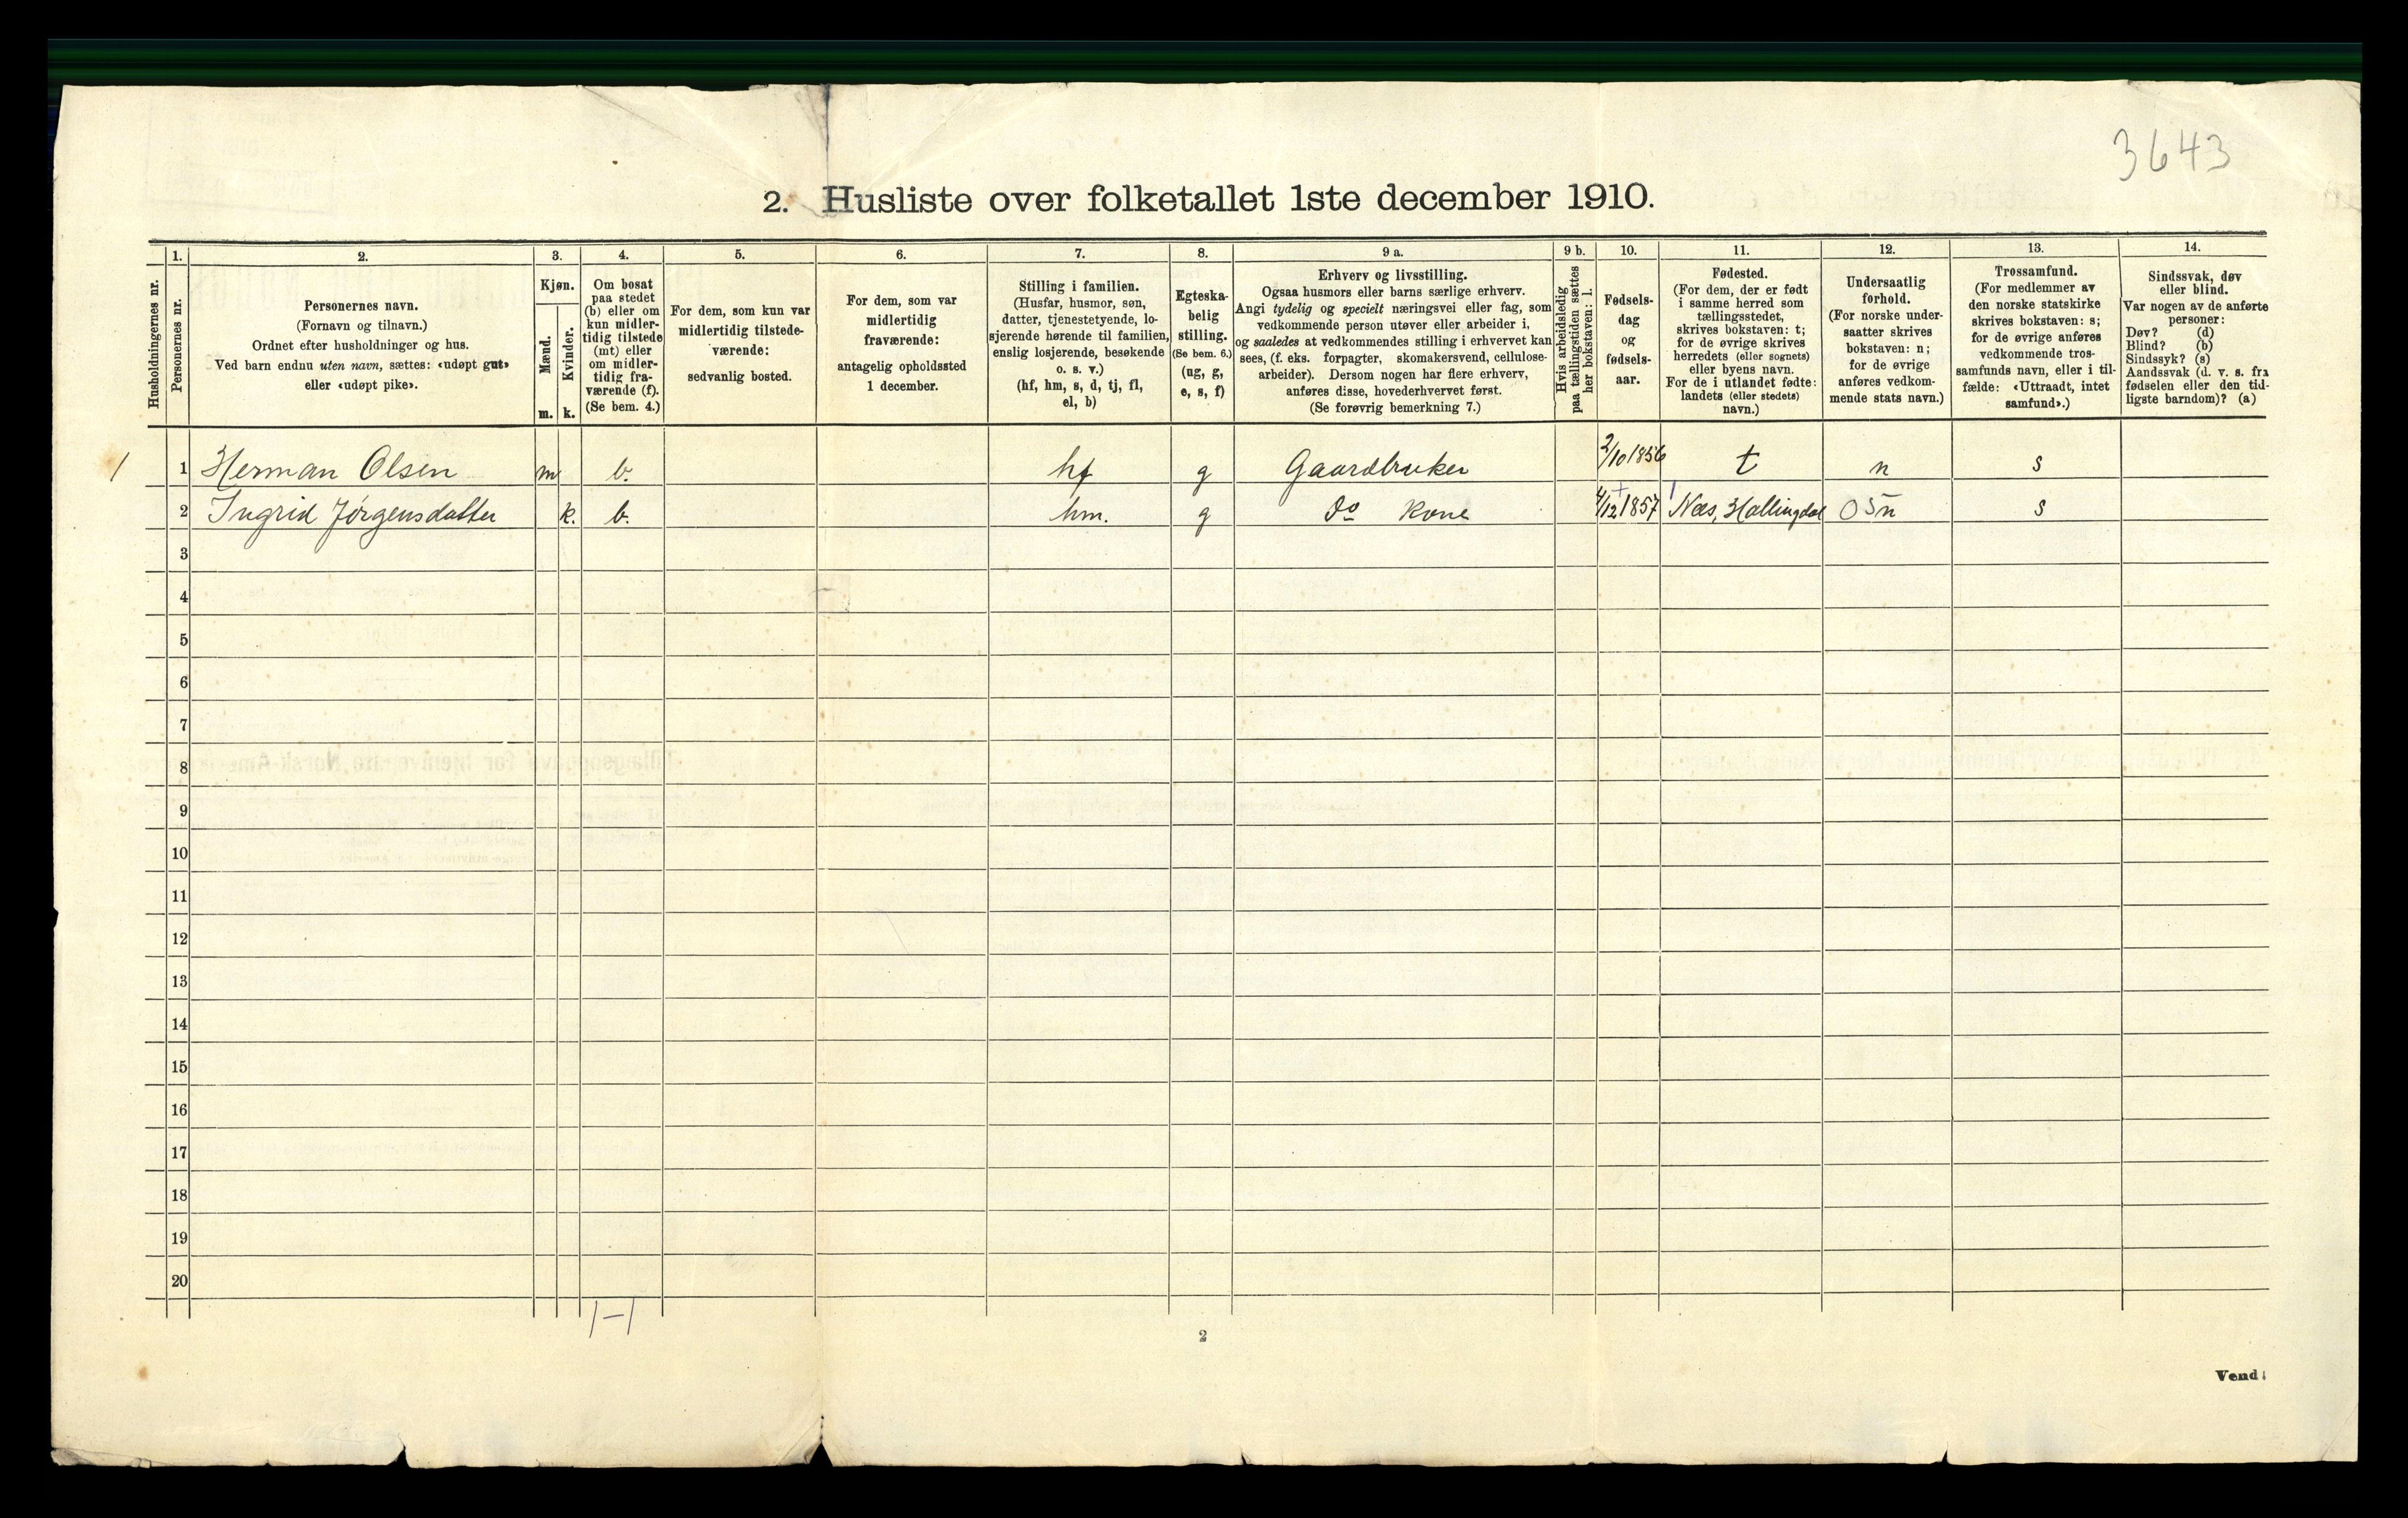 3643
2. Husliste over folketallet 1ste december 1910.
Husholdningernes nr.
1.
Personernes nr.
2.
Personernes navn.
(Fornavn og tilnavn.)
Ordnet efter husholdninger og hus.
Ved barn endnu uten navn, sættes: «udøpt gut»
eller «udøpt pike».
3.
Kjøn.
Mænd.
Kvinder.
m. k.
4.
Om bosat
paa stedet
(b) eller om
kun midler-
tidig tilstede
(mt) eller
om midler-
tidig fra-
værende (f).
(Se bem. 4.)
5.
For dem, som kun var
midlertidig tilstede-
værende:
sedvanlig bosted.
6.
For dem, som var
midlertidig
fraværende:
antagelig opholdssted
1 december.
7.
Stilling i familien.
(Husfar, husmor, søn,
datter, tjenestetyende, lo-
sjerende hørende til familien,
enslig losjerende, besøkende
o. s. v.)
(hf, hm, s, d, tj, fl,
el, b)
8.
Egteska-
belig
stilling.
(Se bem. 6.)
(ug, g,
e, s, f)
9 a.
Erhverv og livsstilling.
Ogsaa husmors eller barns særlige erhverv.
Angi tydelig og specielt næringsvei eller fag, som
vedkommende person utøver eller arbeider i,
og saaledes at vedkommendes stilling i erhvervet kan
sees, (f. eks. forpagter, skomakersvend, cellulose-
arbeider). Dersom nogen har flere erhverv,
anføres disse, hovederhvervet først.
(Se forøvrig bemerkning 7.)
9 b.
Hvis arbeidsledig
paa tællingstiden sættes
her bokstaven: l.
10.
Fødsels-
dag
og
fødsels-
aar.
11.
Fødested.
(For dem, der er født
i samme herred som
tællingsstedet,
skrives bokstaven: t;
for de øvrige skrives
herredets (eller sognets)
eller byens navn.
For de i utlandet fødte:
landets (eller stedets)
navn.)
12.
Undersaatlig
forhold.
(For norske under-
saatter skrives
bokstaven: n;
for de øvrige
anføres vedkom-
mende stats navn.)
13.
Trossamfund.
(For medlemmer av
den norske statskirke
skrives bokstaven: s;
for de øvrige anføres
vedkommende tros-
samfunds navn, eller i til-
fælde: «Uttraadt, intet
samfund».)
14.
Sindssvak, døv
eller blind.
Var nogen av de anførte
personer:
Døv? (d)
Blind? (b)
Sindssyk? (s)
Aandssvak (d. v. s. fra
fødselen eller den tid-
ligste barndom)? (a)
1 1 Herman Olsen m b. hf g Gaardbruker 2/10 1856 t n s
2 Ingrid Jørgensdatter k. b. hm. g do Kone 4/12 1857 Næs, Hallingdal 05 n s
3
4
5
6
7
8
9
10
11
12
13
14
15
16
17
18
19
20
1-1
2
Vend!